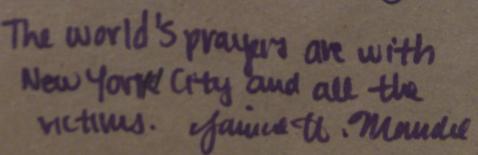 The world's prayers are with
New York City and all the
victims.